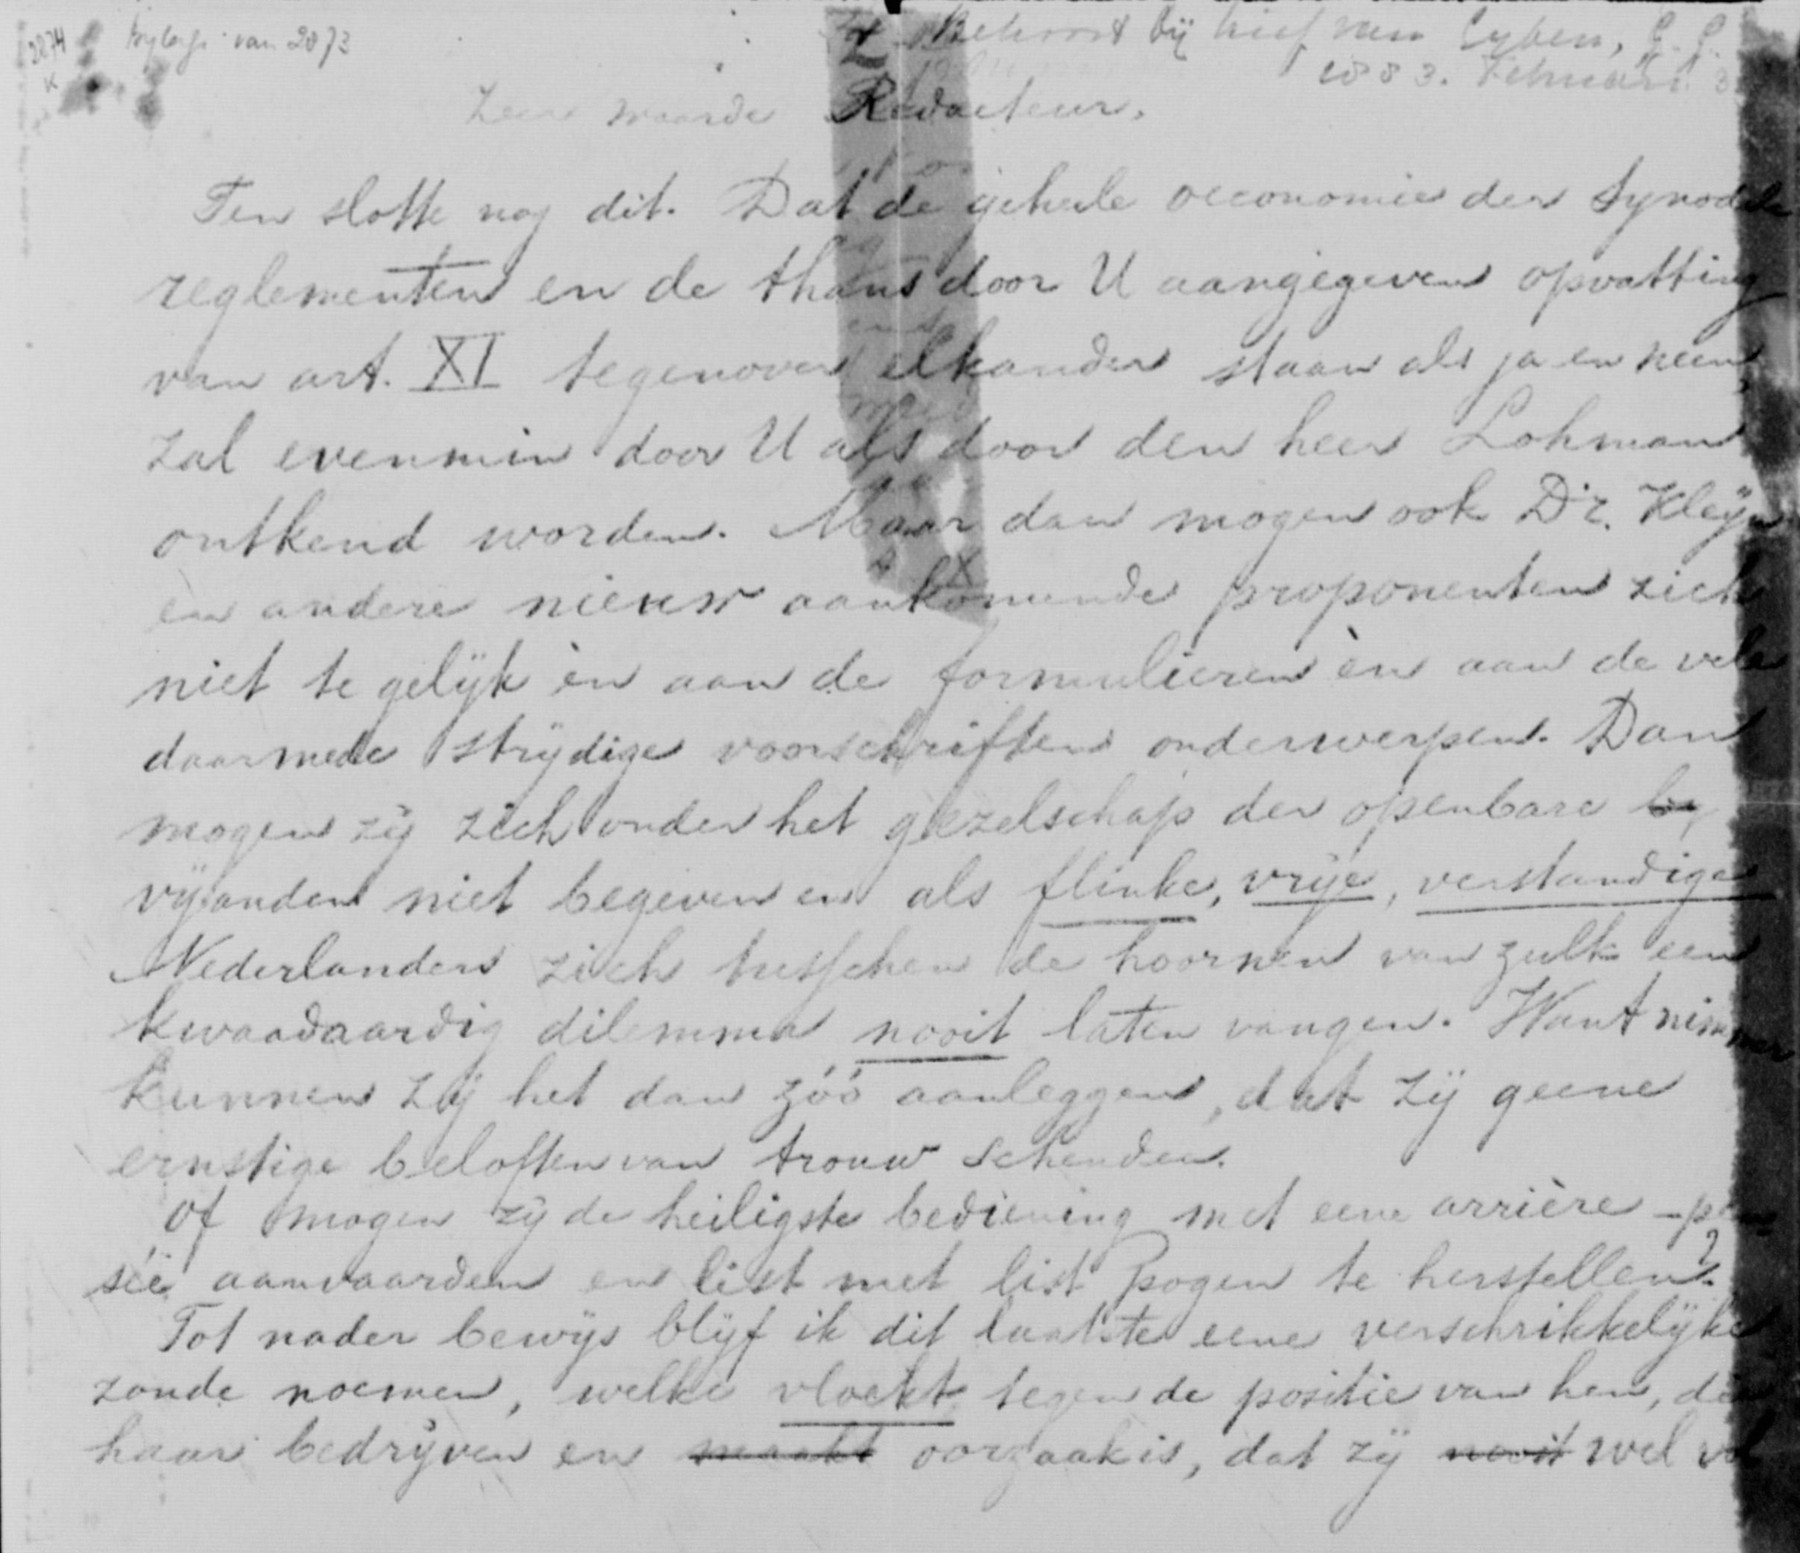 2874
Bylage van 2873
Behoort bij brief van Eyben, G. G.
1883. Februari 3
Zeer waarde Redacteur.
Ten slotte nog dit. Dat de geheele oeconomie der Synodale
reglementen en de thans door U aangegeven opvatting
van art. XI tegenover elkander staan als ja en neen,
zal evenmin door U als door den heer Lohman
ontkend worden. Maar dan mogen ook Dr. Kleyn
en andere nieuw aankomende proponenten zich
niet te gelijk èn aan de formulieren èn aan de vele
daarmede strijdige voorschriften onderwerpen. Dan
mogen zij zich onder het gezelschap der openbare
vijanden niet begeven en als flinke, vrije, verstandige
Nederlanders zich tusschen de hoornen van zulk een
kwaadaardig dilemma nooit laten vangen. Want nimmer
kunnen zij het dan zóó aanleggen, dat zij geene
ernstige beloften van trouw schenden.
Of mogen zij de heiligste bediening met eene arrière-pen-
sée aanvaarden en list met list pogen te herstellen?
Tot nader bewijs blijf ik dit laatste eene verschrikkelijke
zonde noemen, welke vloekt tegen de positie van hen, die
haar bedrijven en maakt oorzaak is, dat zij nooit wel